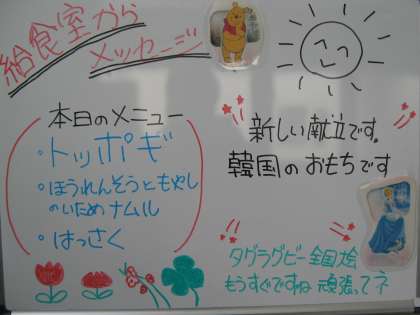 給食室から
メッセージ
本日のメニュー
・トッポギ
・ほうれんそうともやし
のいためナムル
・はっさく
新しい献立です。
韓国のおもちです
タグラグビー全国大会
もうすぐですね 頑張ってネ